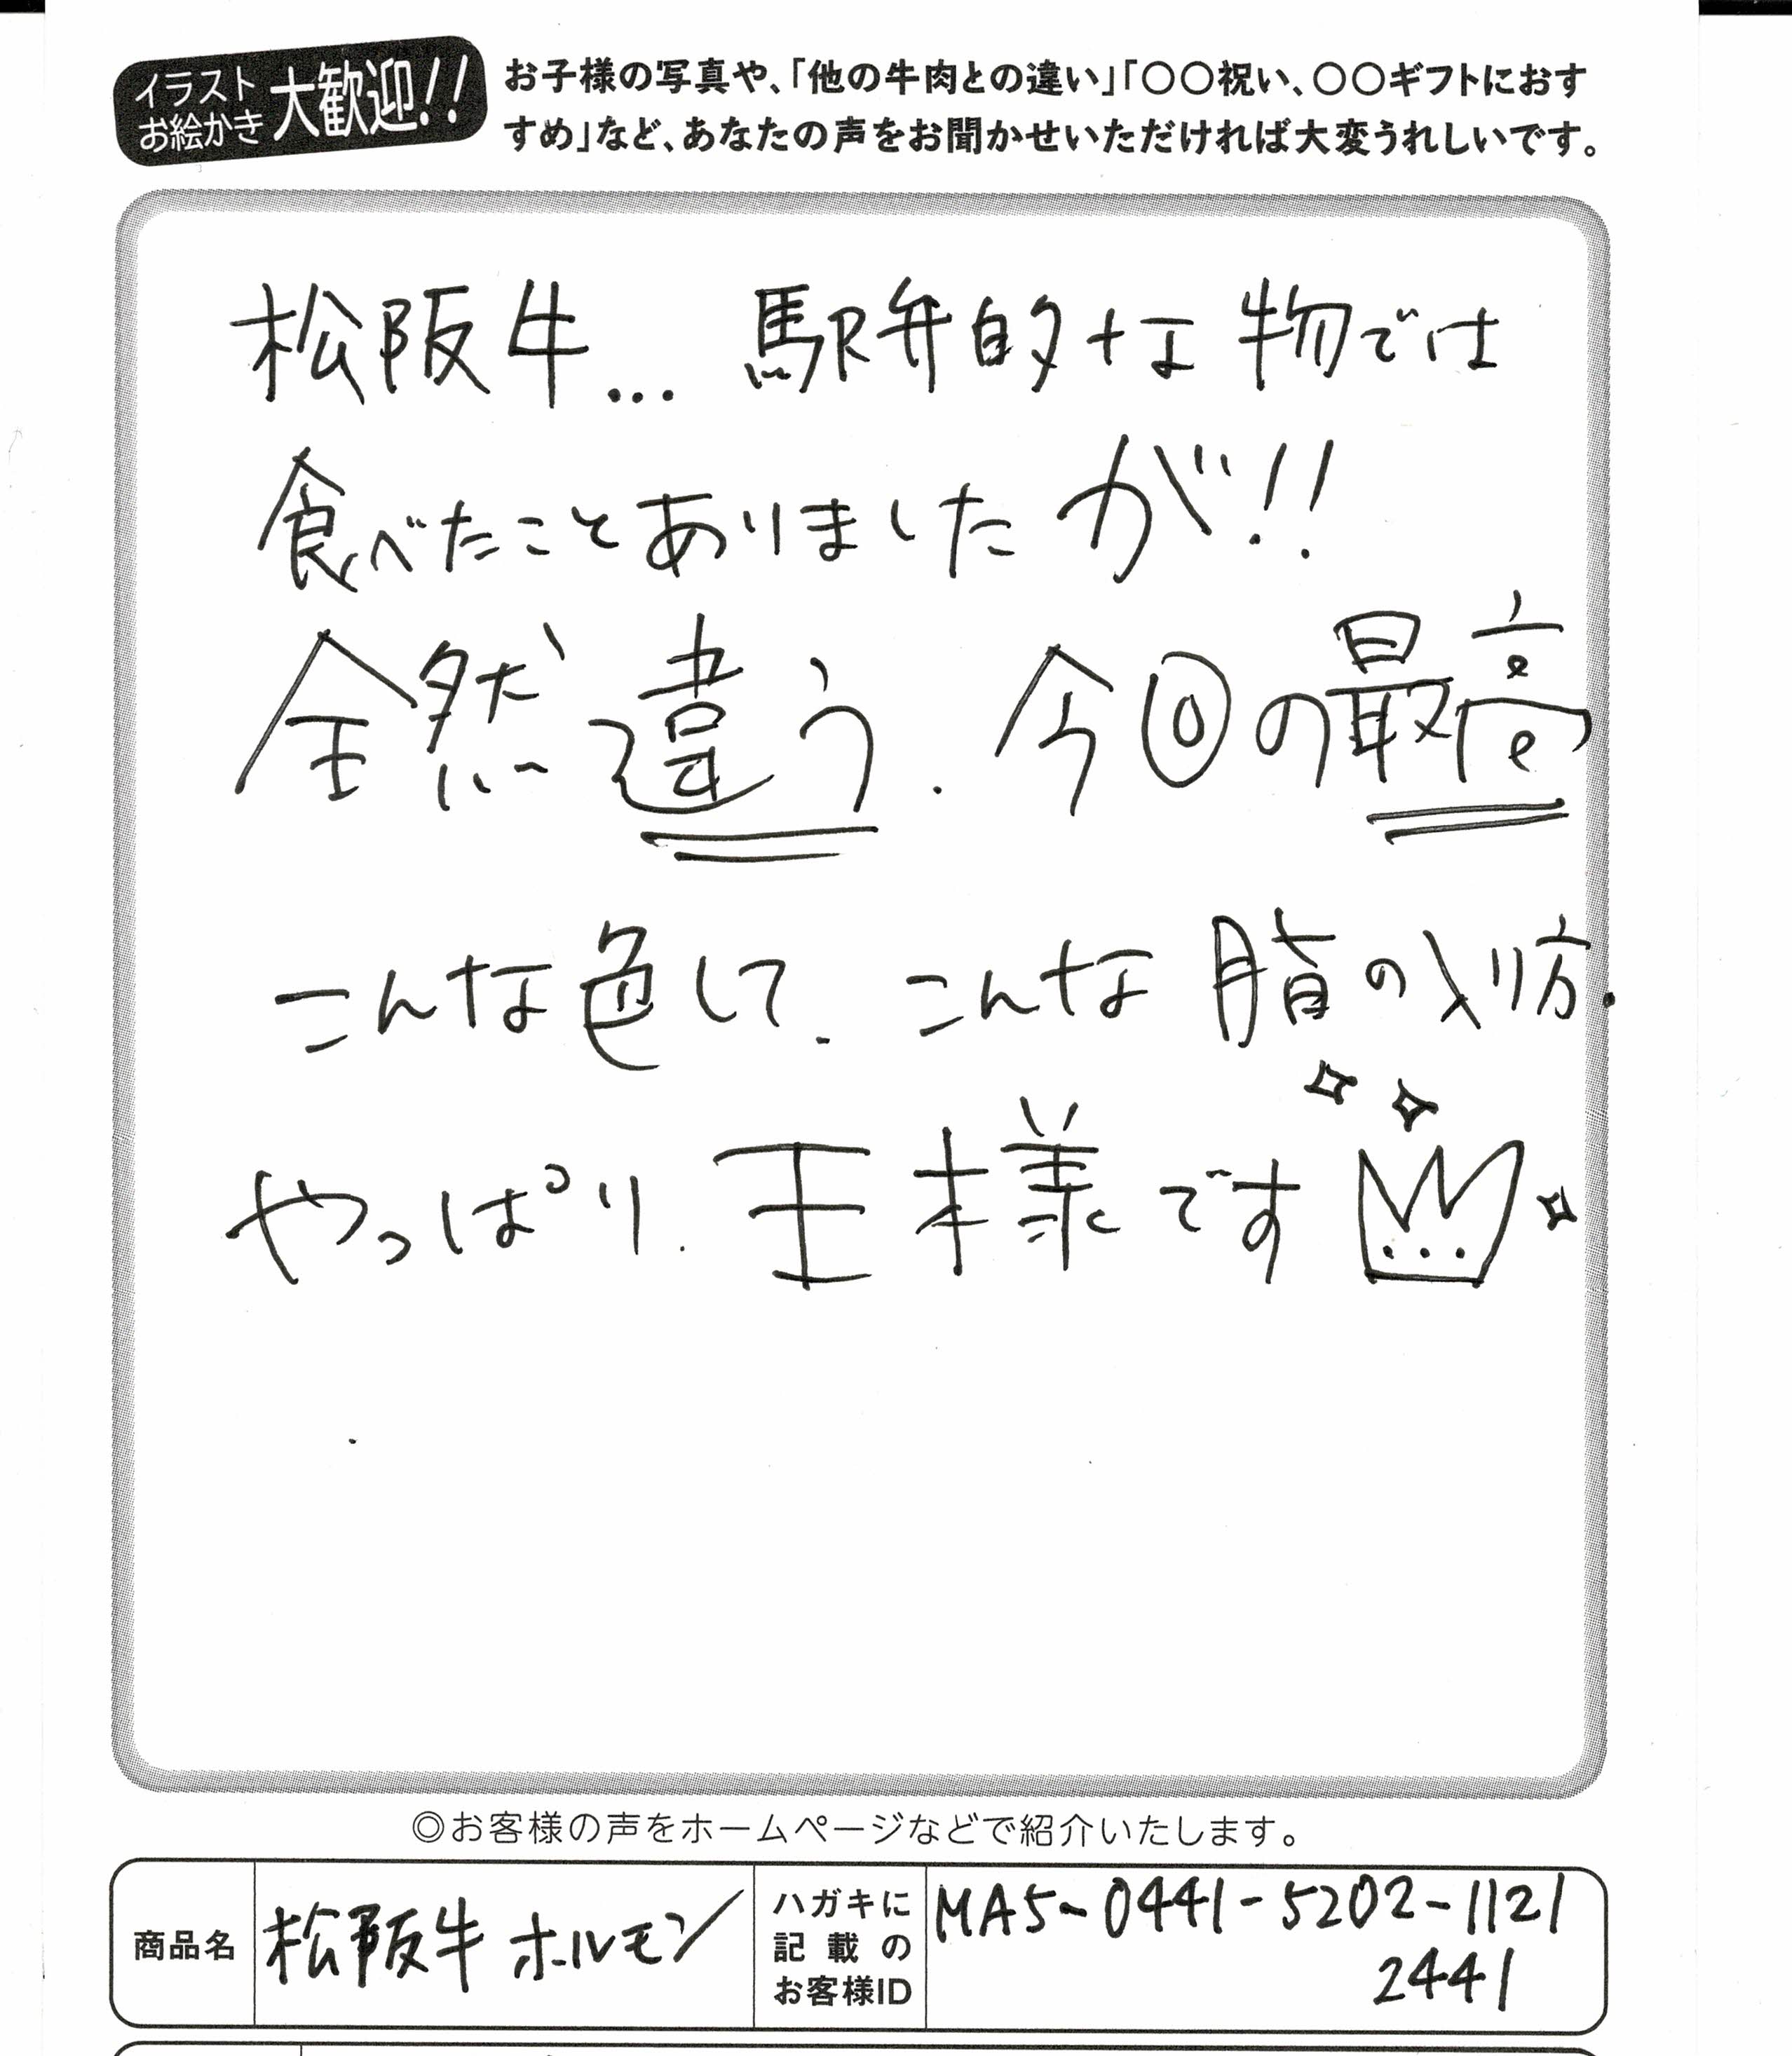 イラスト
お絵かき
大歓迎!!
お子様の写真や、「他の牛肉との違い」「〇〇祝い、〇〇ギフトにおす
すめ」など、あなたの声をお聞かせいただければ大変うれしいです。
松阪牛... 駅弁的な物では
食べたことありましたが!!
全然違う. 今回の最高
こんな色して. こんな脂の入り方.
やっぱり. 王様です
◎お客様の声をホームページなどで紹介いたします。
商品名
松阪牛 ホルモン
ハガキに
記載の
お客様ID
MA5-0441-5202-1121
2441